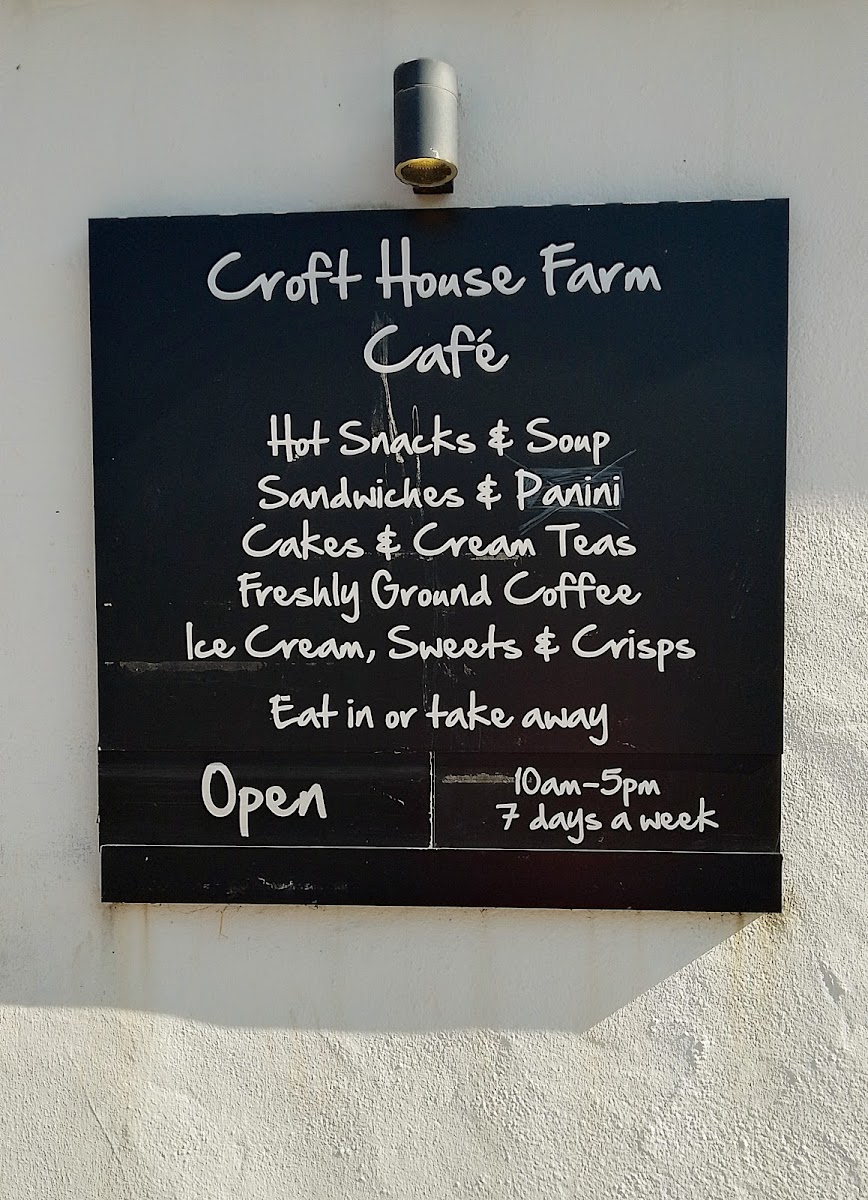 Croft House Farm
Café
Hot Snacks & Soup
Sandwiches & Panini
Cakes & Cream Teas
Freshly Ground Coffee
Ice Cream, Sweets & Crisps
Eat in or take away
Open
10am-5pm
7 days a week